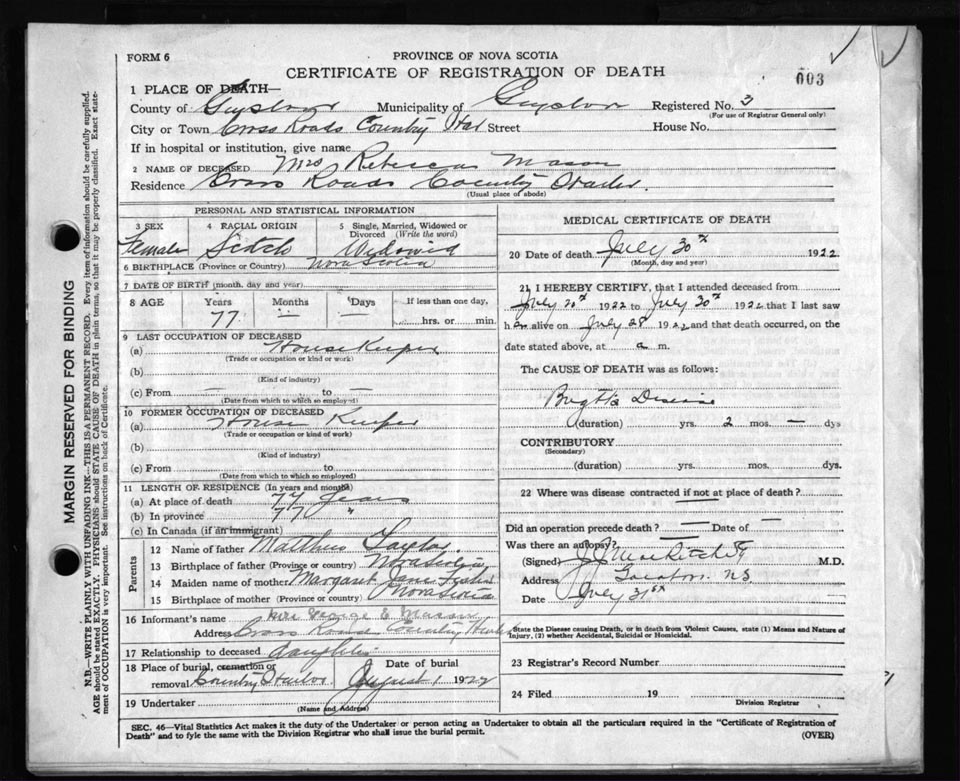 FORM 6
PROVINCE OF NOVA SCOTIA
CERTIFICATE OF REGISTRATION OF DEATH
003
1 PLACE OF DEATH—
County of Guysboro Municipality of Guysboro Registered No. 3
(For use of Registrar General only)
City or Town Cross Roads Country Har Street House No.
If in hospital or institution, give name
2 NAME OF DECEASED Mrs Rebecca Mason
Residence Cross Roads Country Harbor.
(Usual place of abode)
PERSONAL AND STATISTICAL INFORMATION
3 SEX 4 RACIAL ORIGIN 5 Single, Married, Widowed or Divorced (Write the word)
Female Scotch Widowed
6 BIRTHPLACE (Province or Country) Nova Scotia
7 DATE OF BIRTH (month, day and year)
8 AGE Years Months Days If less than one day,
77 — — hrs. or min.
9 LAST OCCUPATION OF DECEASED
(a) House Keeper
(Trade or occupation or kind or work)
(b)
(Kind of industry)
(c) From — to —
(Date from which to which so employed)
10 FORMER OCCUPATION OF DECEASED
(a) House Keeper
(Trade or occupation or kind of work)
(b)
(Kind of industry)
(c) From to
(Date from which to which so employed)
11 LENGTH OF RESIDENCE (In years and months)
(a) At place of death 77 years
(b) In province 77 "
(c) In Canada (if an immigrant)
Parents
12 Name of father Matthew Taylor.
13 Birthplace of father (Province or country) Nova Scotia
14 Maiden name of mother Margaret Jane
15 Birthplace of mother (Province or country) Nova Scotia
16 Informant's name George E Mason
Address Cross Roads Country Harbor
17 Relationship to deceased daughter
18 Place of burial, cremation or removal Country Harbor Date of burial August 1 1922
19 Undertaker
(Name and Address)
MEDICAL CERTIFICATE OF DEATH
20 Date of death July 30th 1922
(Month, day and year)
21 I HEREBY CERTIFY, that I attended deceased from
July 20th 1922 to July 30th 1922 that I last saw
her alive on July 28 1922 and that death occurred, on the
date stated above, at a m.
The CAUSE OF DEATH was as follows:
Brights Disease
(duration) yrs. 2 mos. — dys
CONTRIBUTORY
(Secondary)
(duration) yrs. mos. dys.
22 Where was disease contracted if not at place of death?
—
Did an operation precede death? — Date of —
Was there an autopsy?
(Signed) M.D.
Address N.S
Date July 31st
State the Disease causing Death, or in death from Violent Causes, state (1) Means and Nature of
Injury, (2) whether Accidental, Suicidal or Homicidal.
23 Registrar's Record Number
24 Filed 19
Division Registrar
SEC. 46—Vital Statistics Act makes it the duty of the Undertaker or person acting as Undertaker to obtain all the particulars required in the "Certificate of Registration of
Death" and to fyle the same with the Division Registrar who shall issue the burial permit. (OVER)
MARGIN RESERVED FOR BINDING
N.B.—WRITE PLAINLY WITH UNFADING INK—THIS IS A PERMANENT RECORD. Every item of information should be carefully supplied.
AGE should be stated EXACTLY. PHYSICIANS should STATE CAUSE OF DEATH in plain terms, so that it may be properly classified. Exact statement of OCCUPATION is very important. See instructions on back of Certificate.